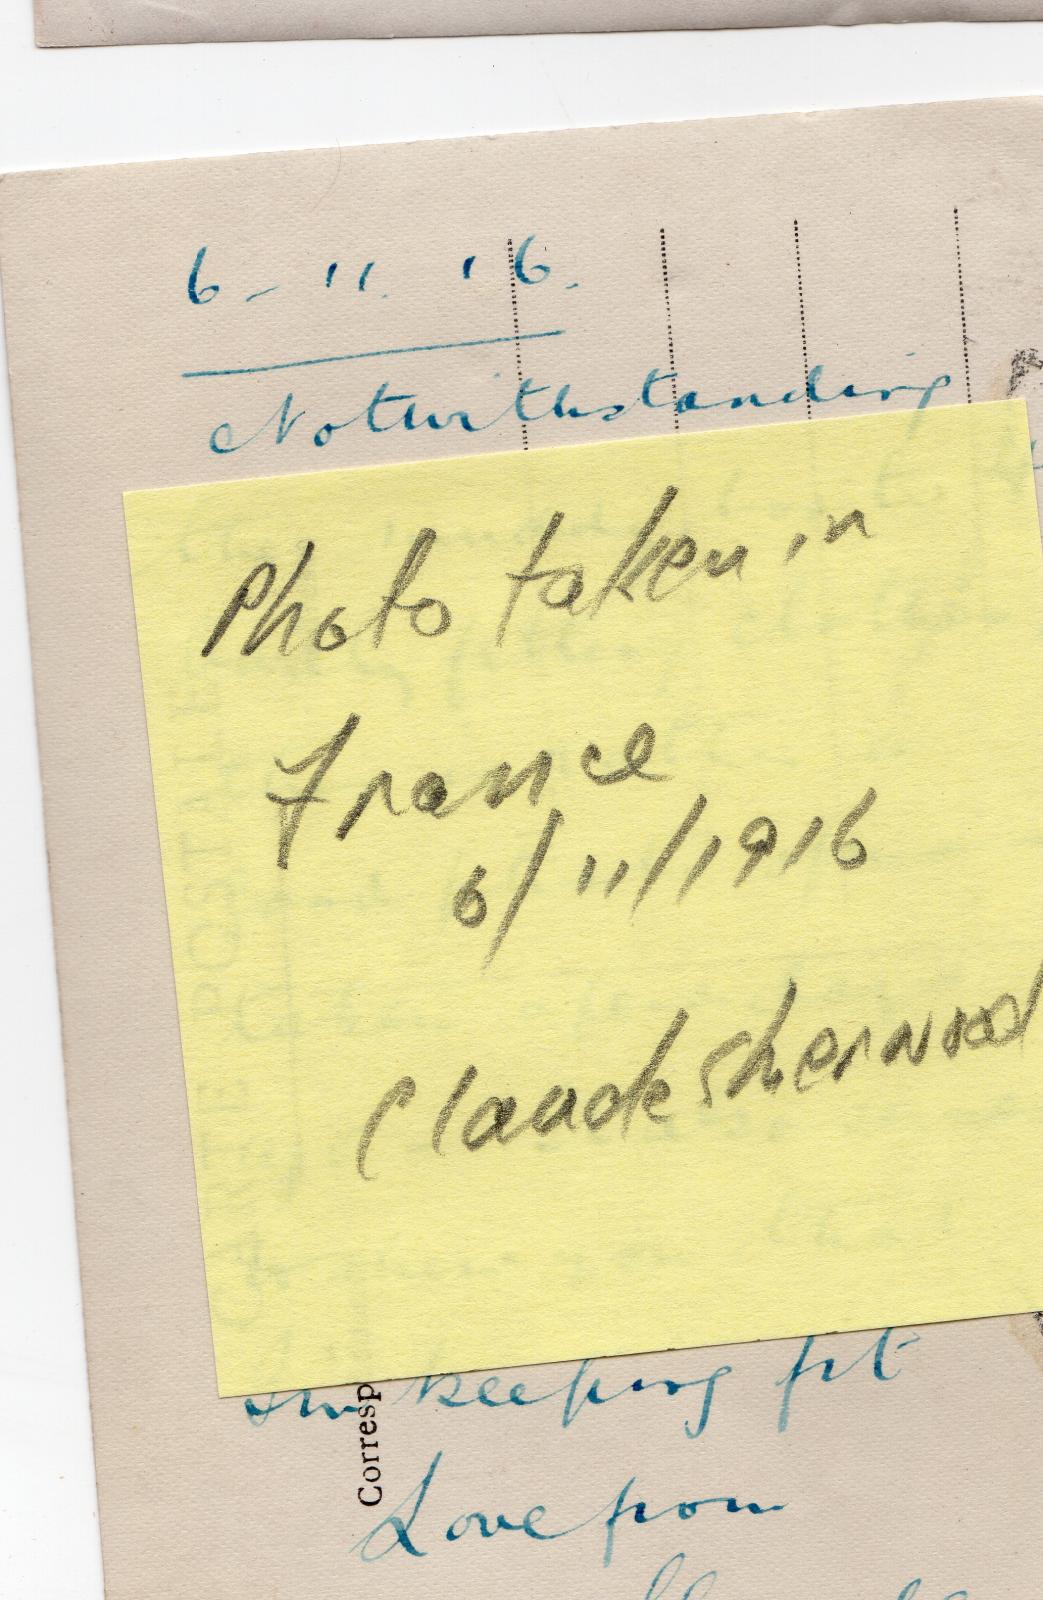 6 - 11. 16.
Notwithstanding
Photo taken in
France
6/11/1916
Claude Sherwood
keeping fit
Corresp
Love from